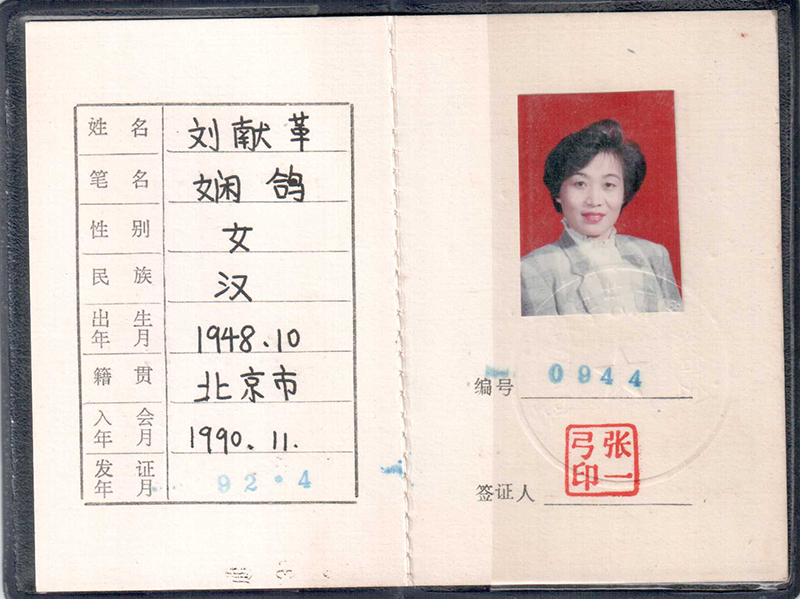 姓名 刘献革
笔名 娴鸽
性别 女
民族 汉
出生年月 1948.10
籍贯 北京市
入会年月 1990.11.
发证年月 92·4
编号 0944
签证人 张一弓印